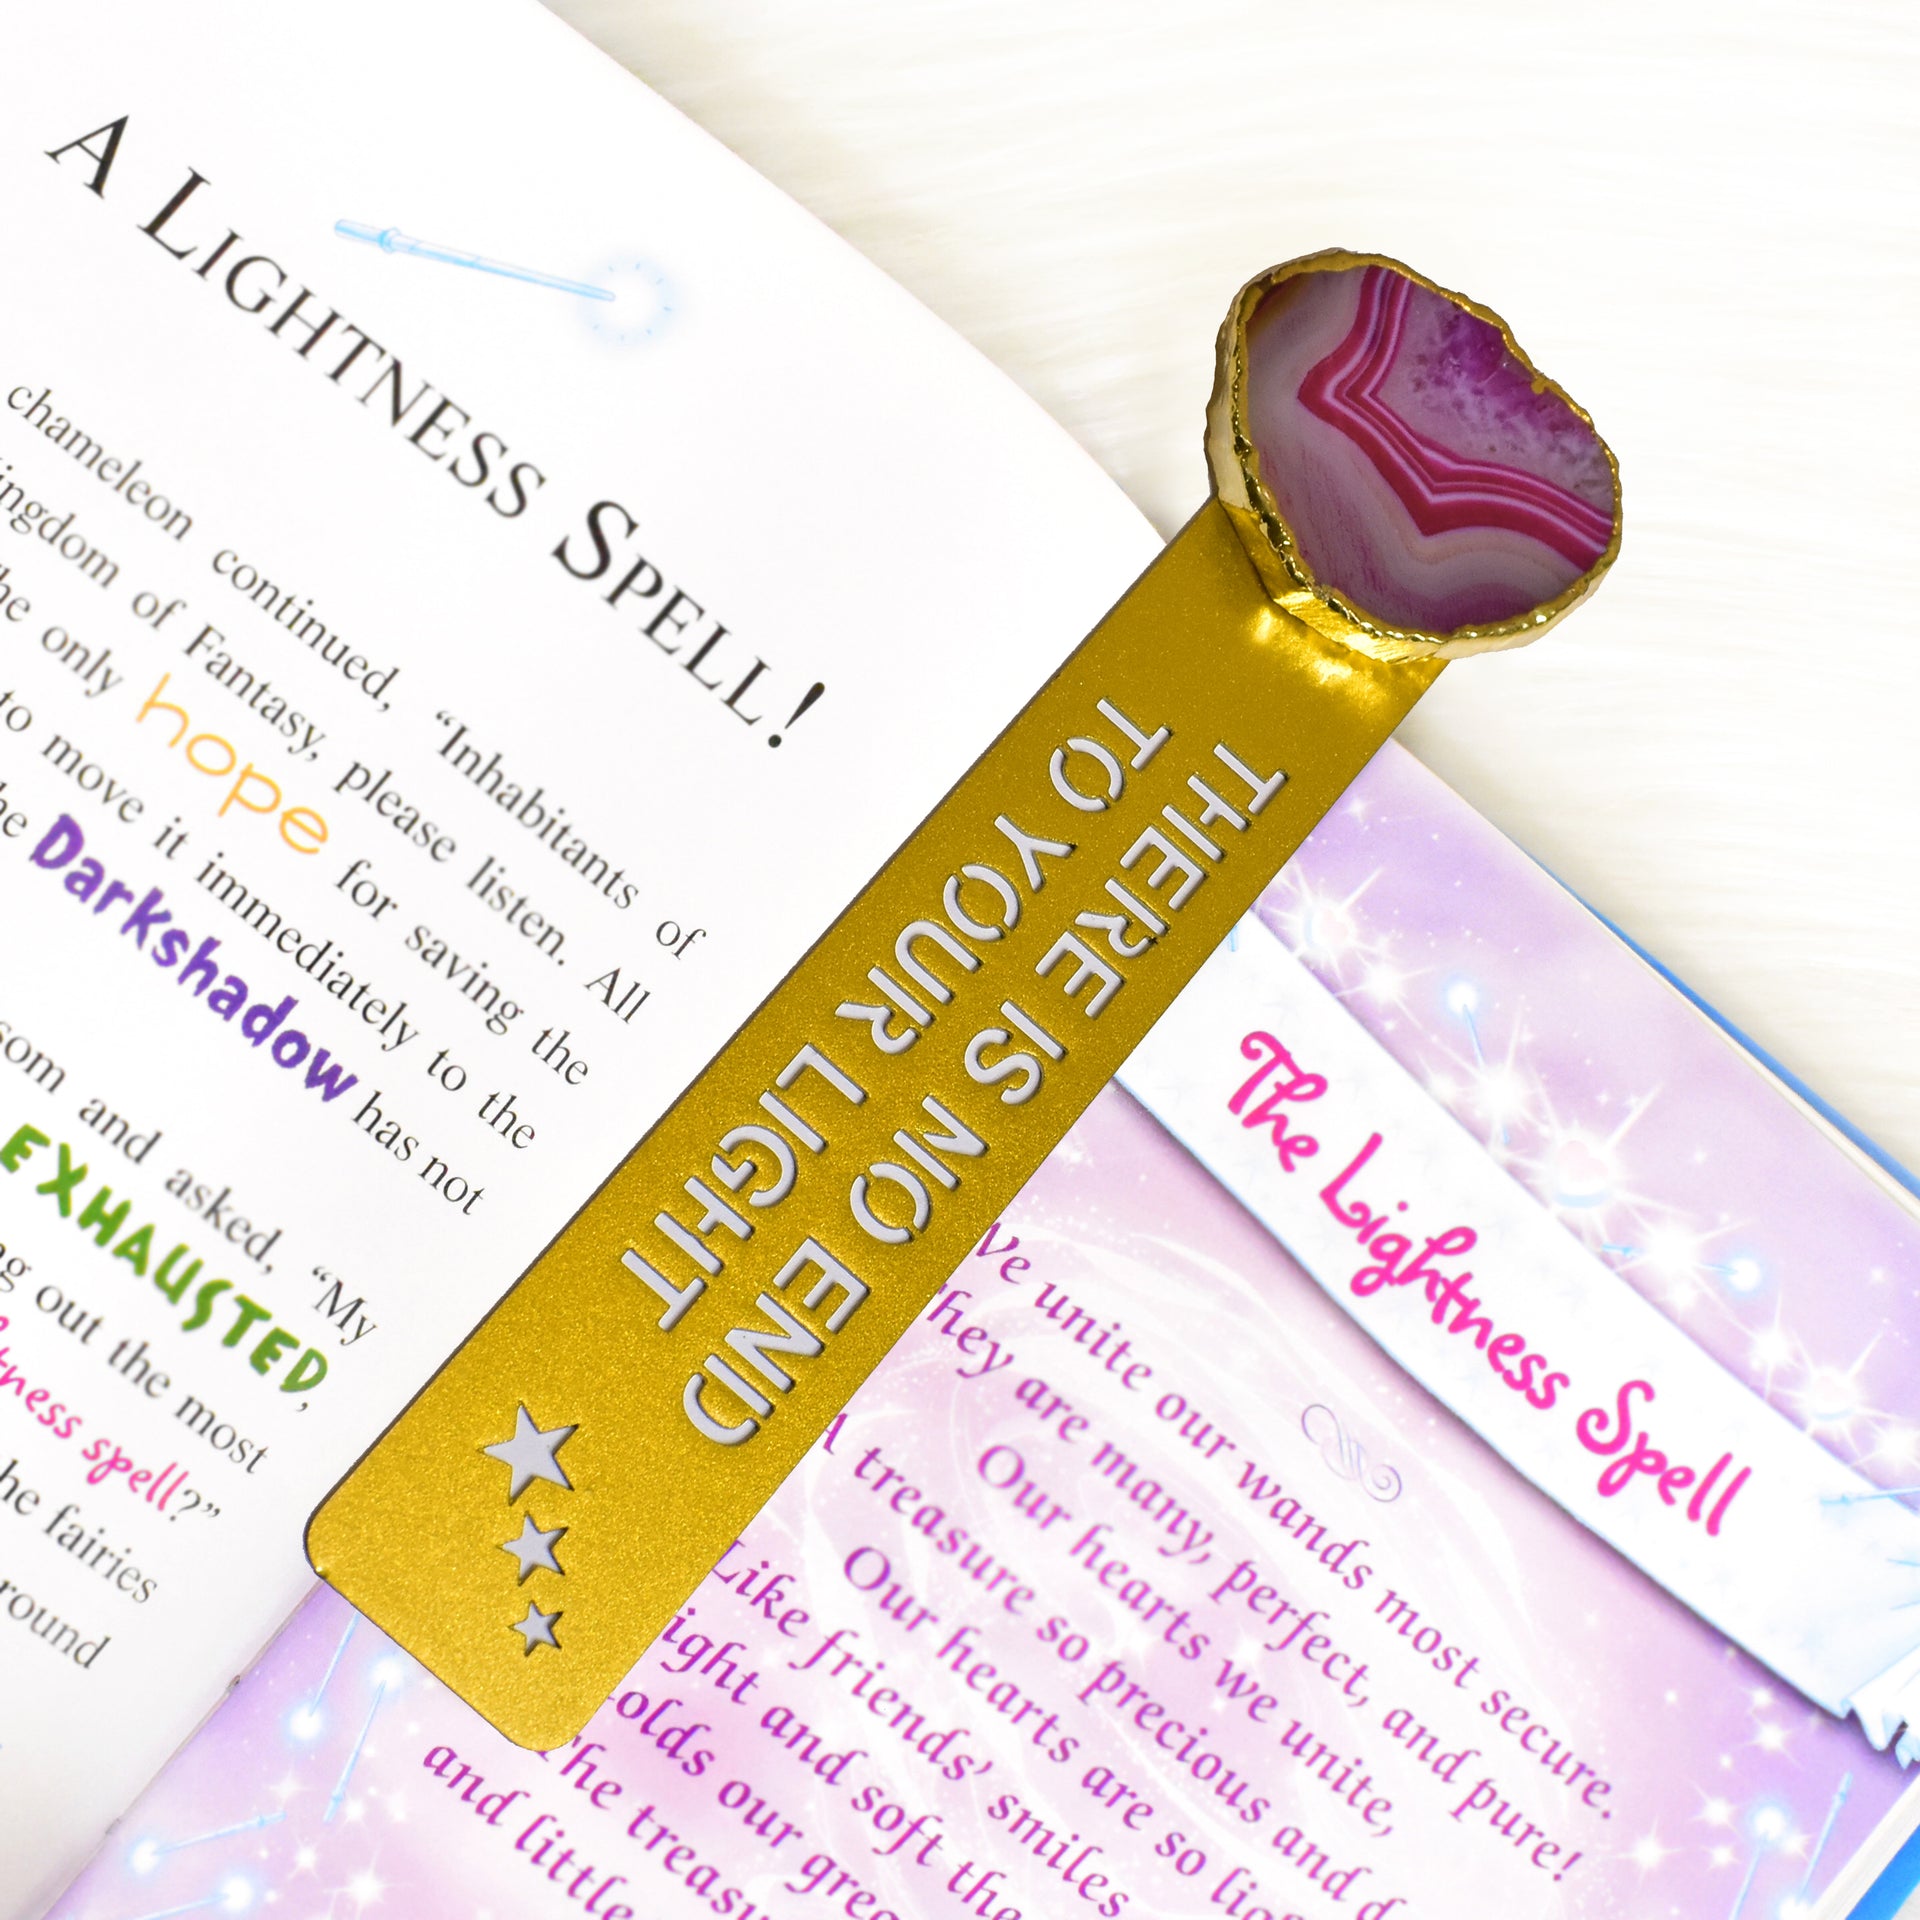 A LIGHTNESS SPELL!
chameleon continued, “Inhabitants of
of Fantasy, please listen. All
only hope for saving the
to move it immediately to the
Darkshadow has not
and asked, “My
EXHAUSTED,
out the most
spell?”
fairies
THERE IS NO END
TO YOUR LIGHT
The Lightness Spell
unite our wands most secure.
are many, perfect, and pure!
Our hearts we unite,
A treasure so precious and
Our hearts are so
Like friends’ smiles
and soft the
our
The
and little